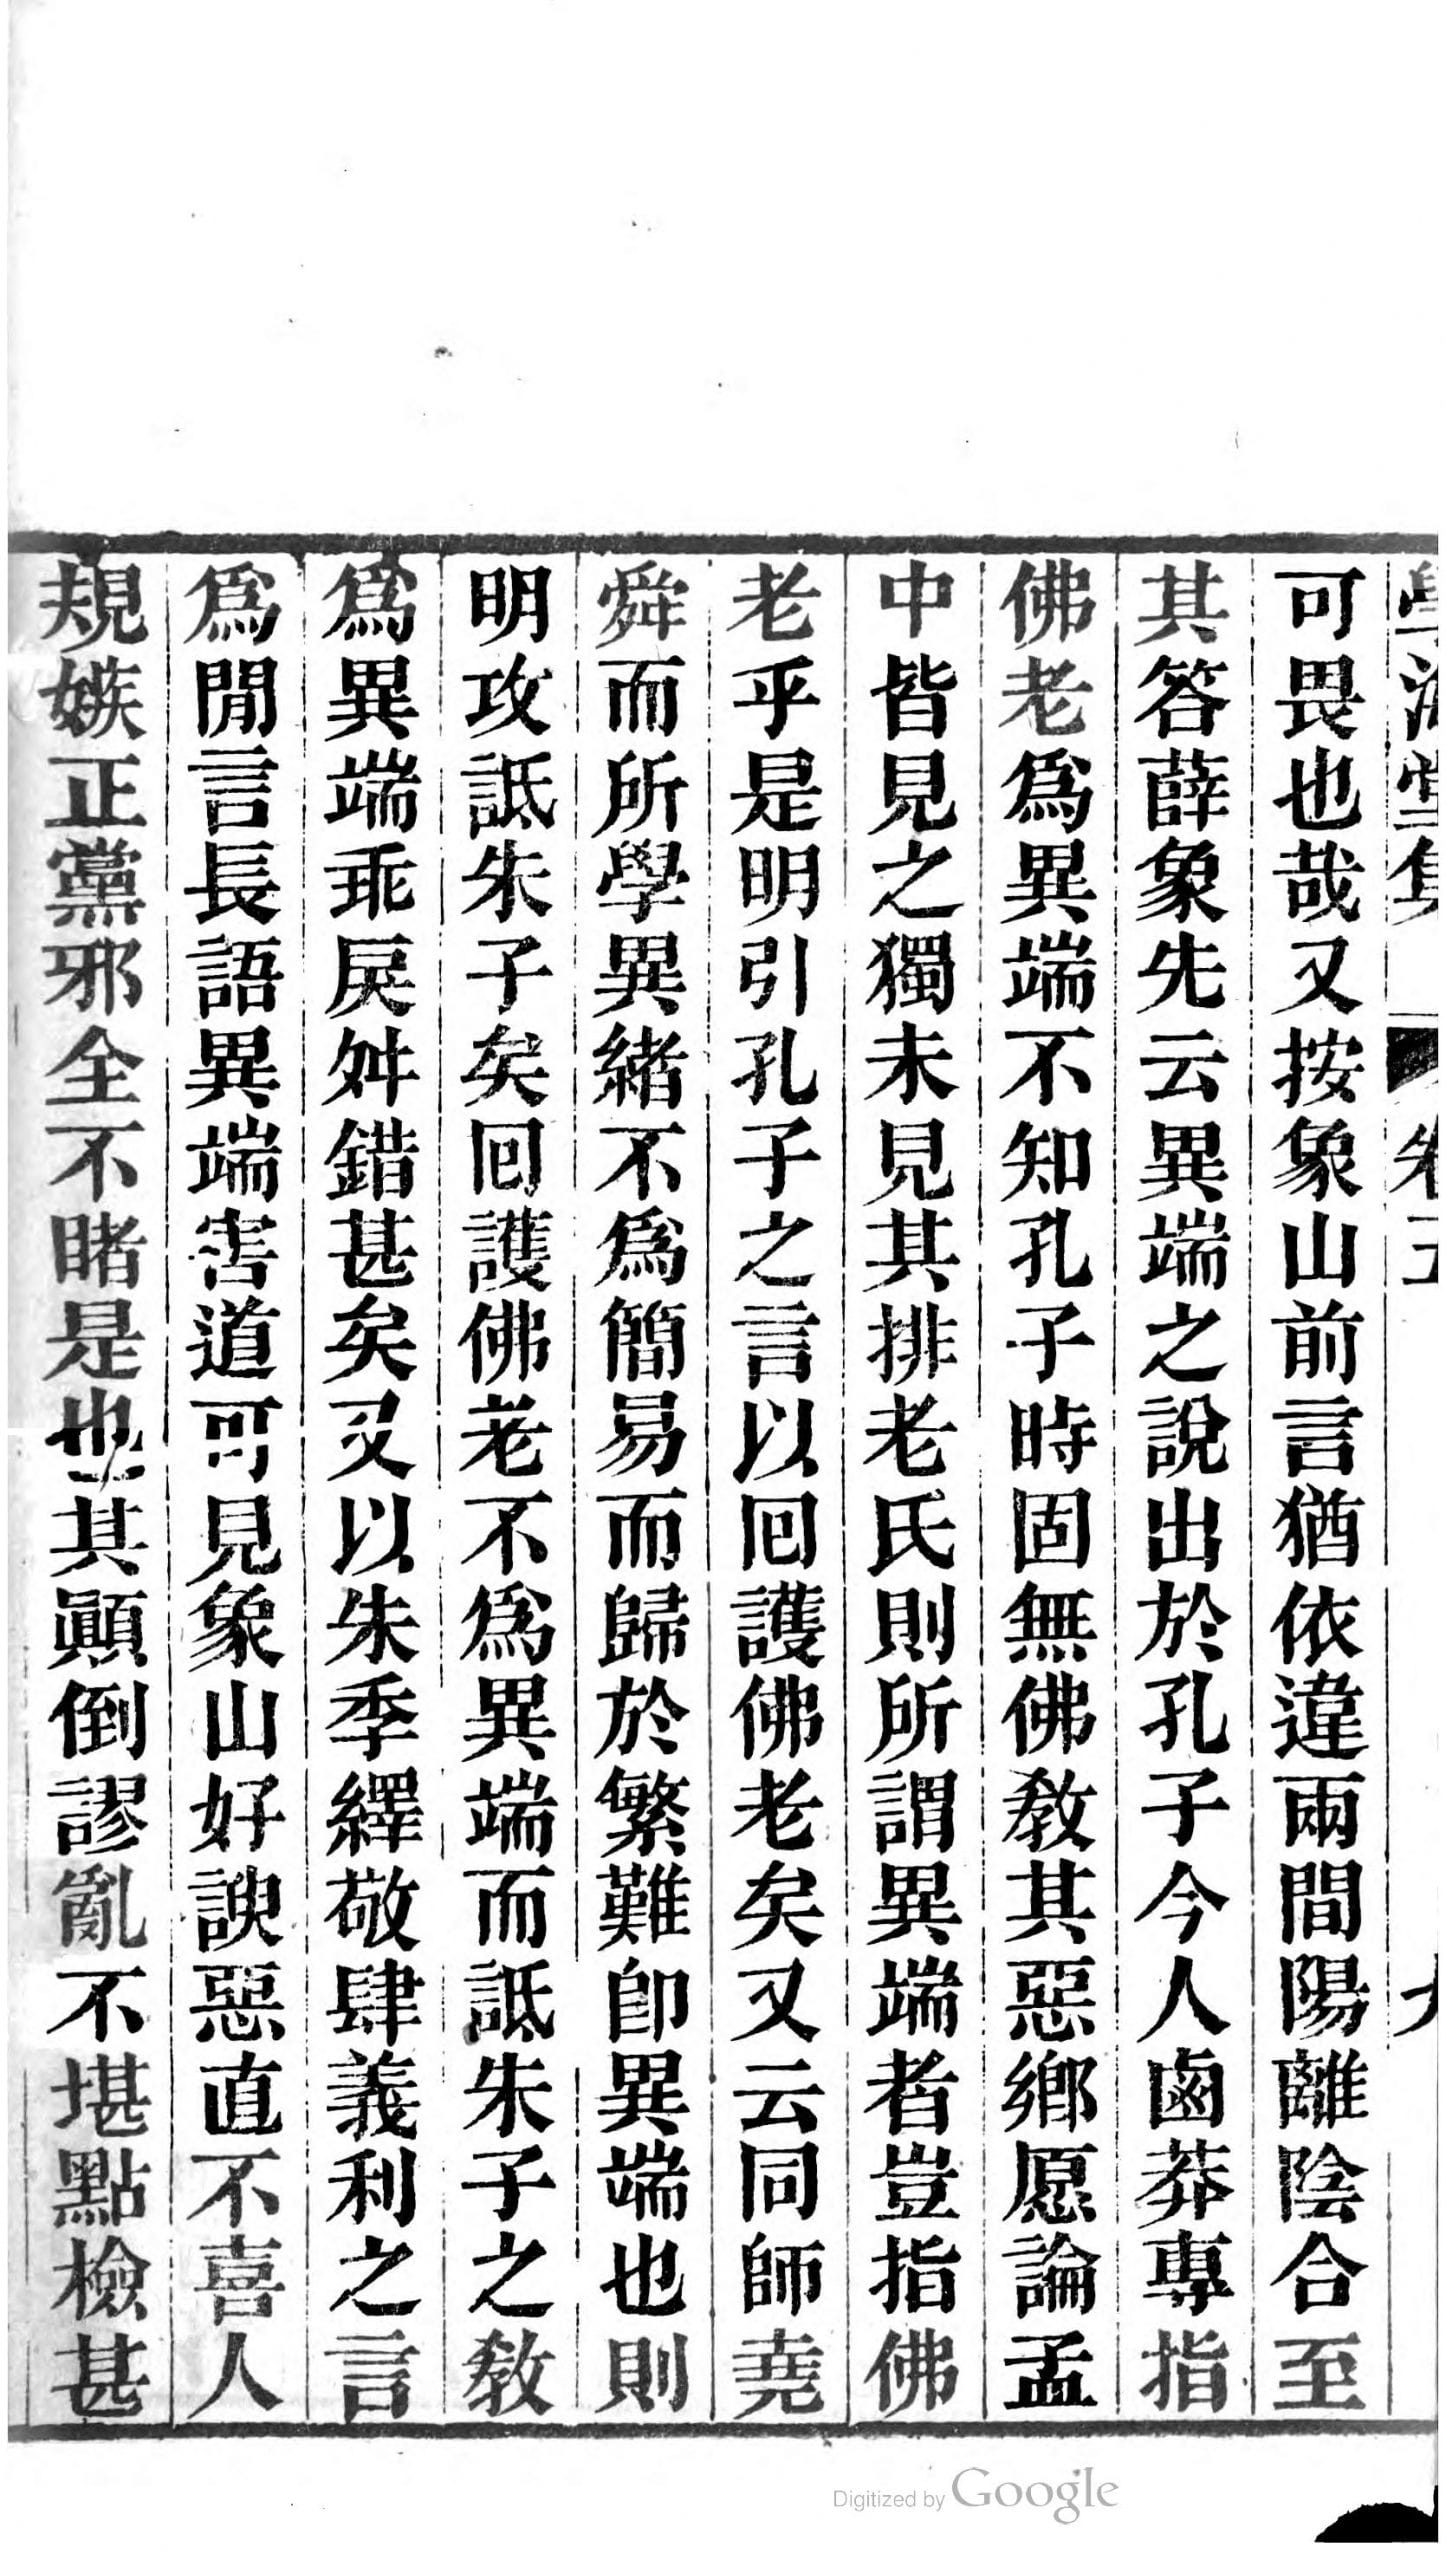 可畏也哉又按象山前言猶依違兩間陽離陰合至
其答薛象先云異端之說出於孔子今人鹵莽專指
佛老爲異端不知孔子時固無佛教其惡鄉愿論孟
中皆見之獨未見其排老氏則所謂異端者豈指佛
老乎是明引孔子之言以囘護佛老矣又云同師堯
舜而所學異緒不爲簡易而歸於繁難卽異端也則
明攻詆朱子矣囘護佛老不爲異端而詆朱子之教
爲異端乖戾舛錯甚矣又以朱季繹敬肆義利之言
爲閒言長語異端害道可見象山好諛惡直不喜人
規嫉正黨邪全不睹是也其顚倒謬亂不堪點檢甚
Digitized by Google